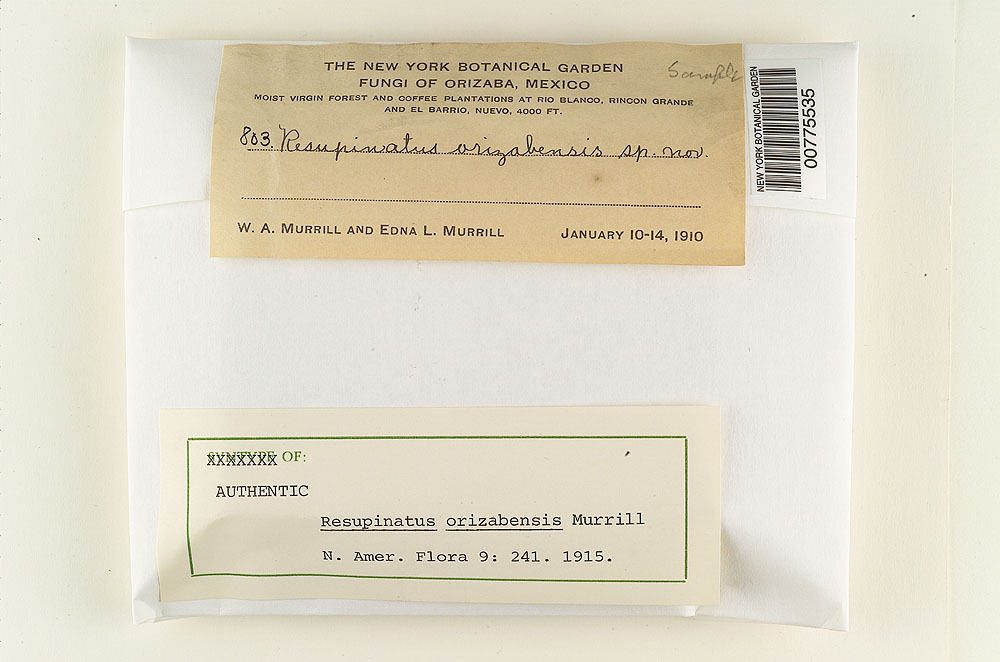 THE NEW YORK BOTANICAL GARDEN
Sample
FUNGI OF ORIZABA, MEXICO
MOIST VIRGIN FOREST AND COFFEE PLANTATIONS AT RIO BLANCO, RINCON GRANDE
AND EL BARRIO, NUEVO, 4000 FT.
803. Resupinatus orizabensis sp. nov.
W. A. MURRILL AND EDNA L. MURRILL JANUARY 10-14, 1910
NEW YORK BOTANICAL GARDEN
00775535
SYNTYPE OF:
AUTHENTIC
Resupinatus orizabensis Murrill
N. Amer. Flora 9: 241. 1915.